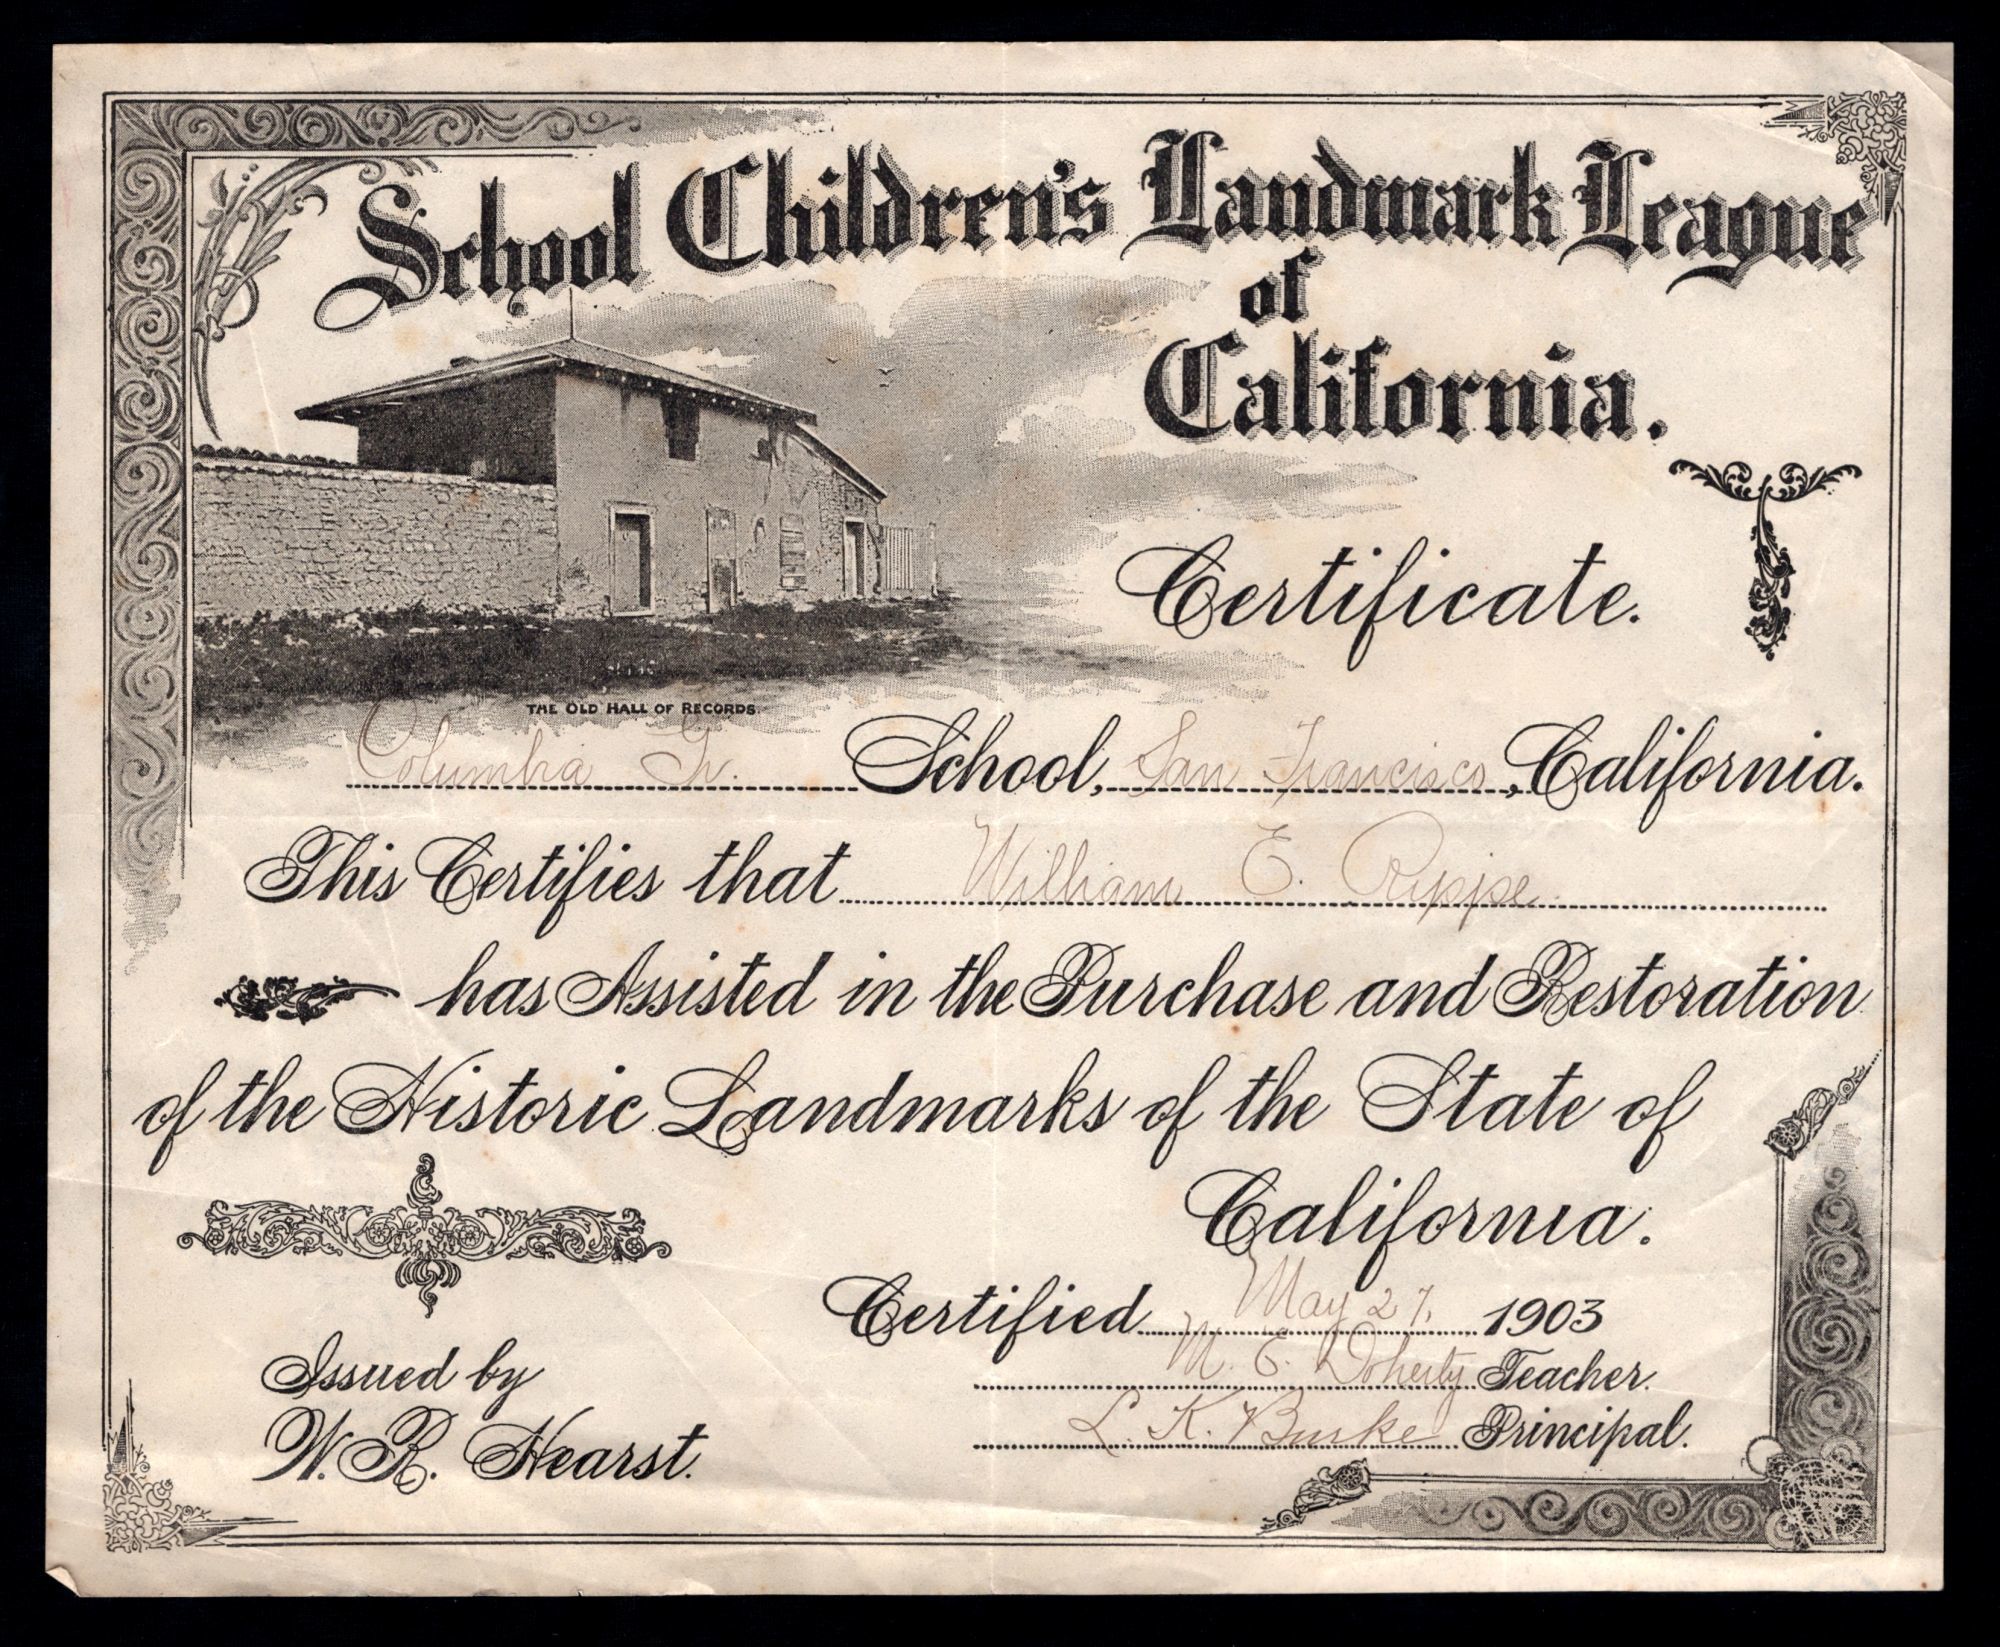 School Children's Landmark League
of
California.
Certificate.
THE OLD HALL OF RECORDS.
Columbia Gr. School, San Francisco, California.
This Certifies that William E. Rippe
has Assisted in the Purchase and Restoration
of the Historic Landmarks of the State of
California.
Certified May 27, 1903
M. E. Doherty Teacher.
L. K. Burke Principal.
Issued by
W. R. Hearst.